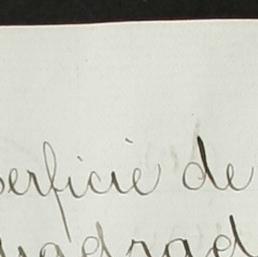 erficie de
uadrad